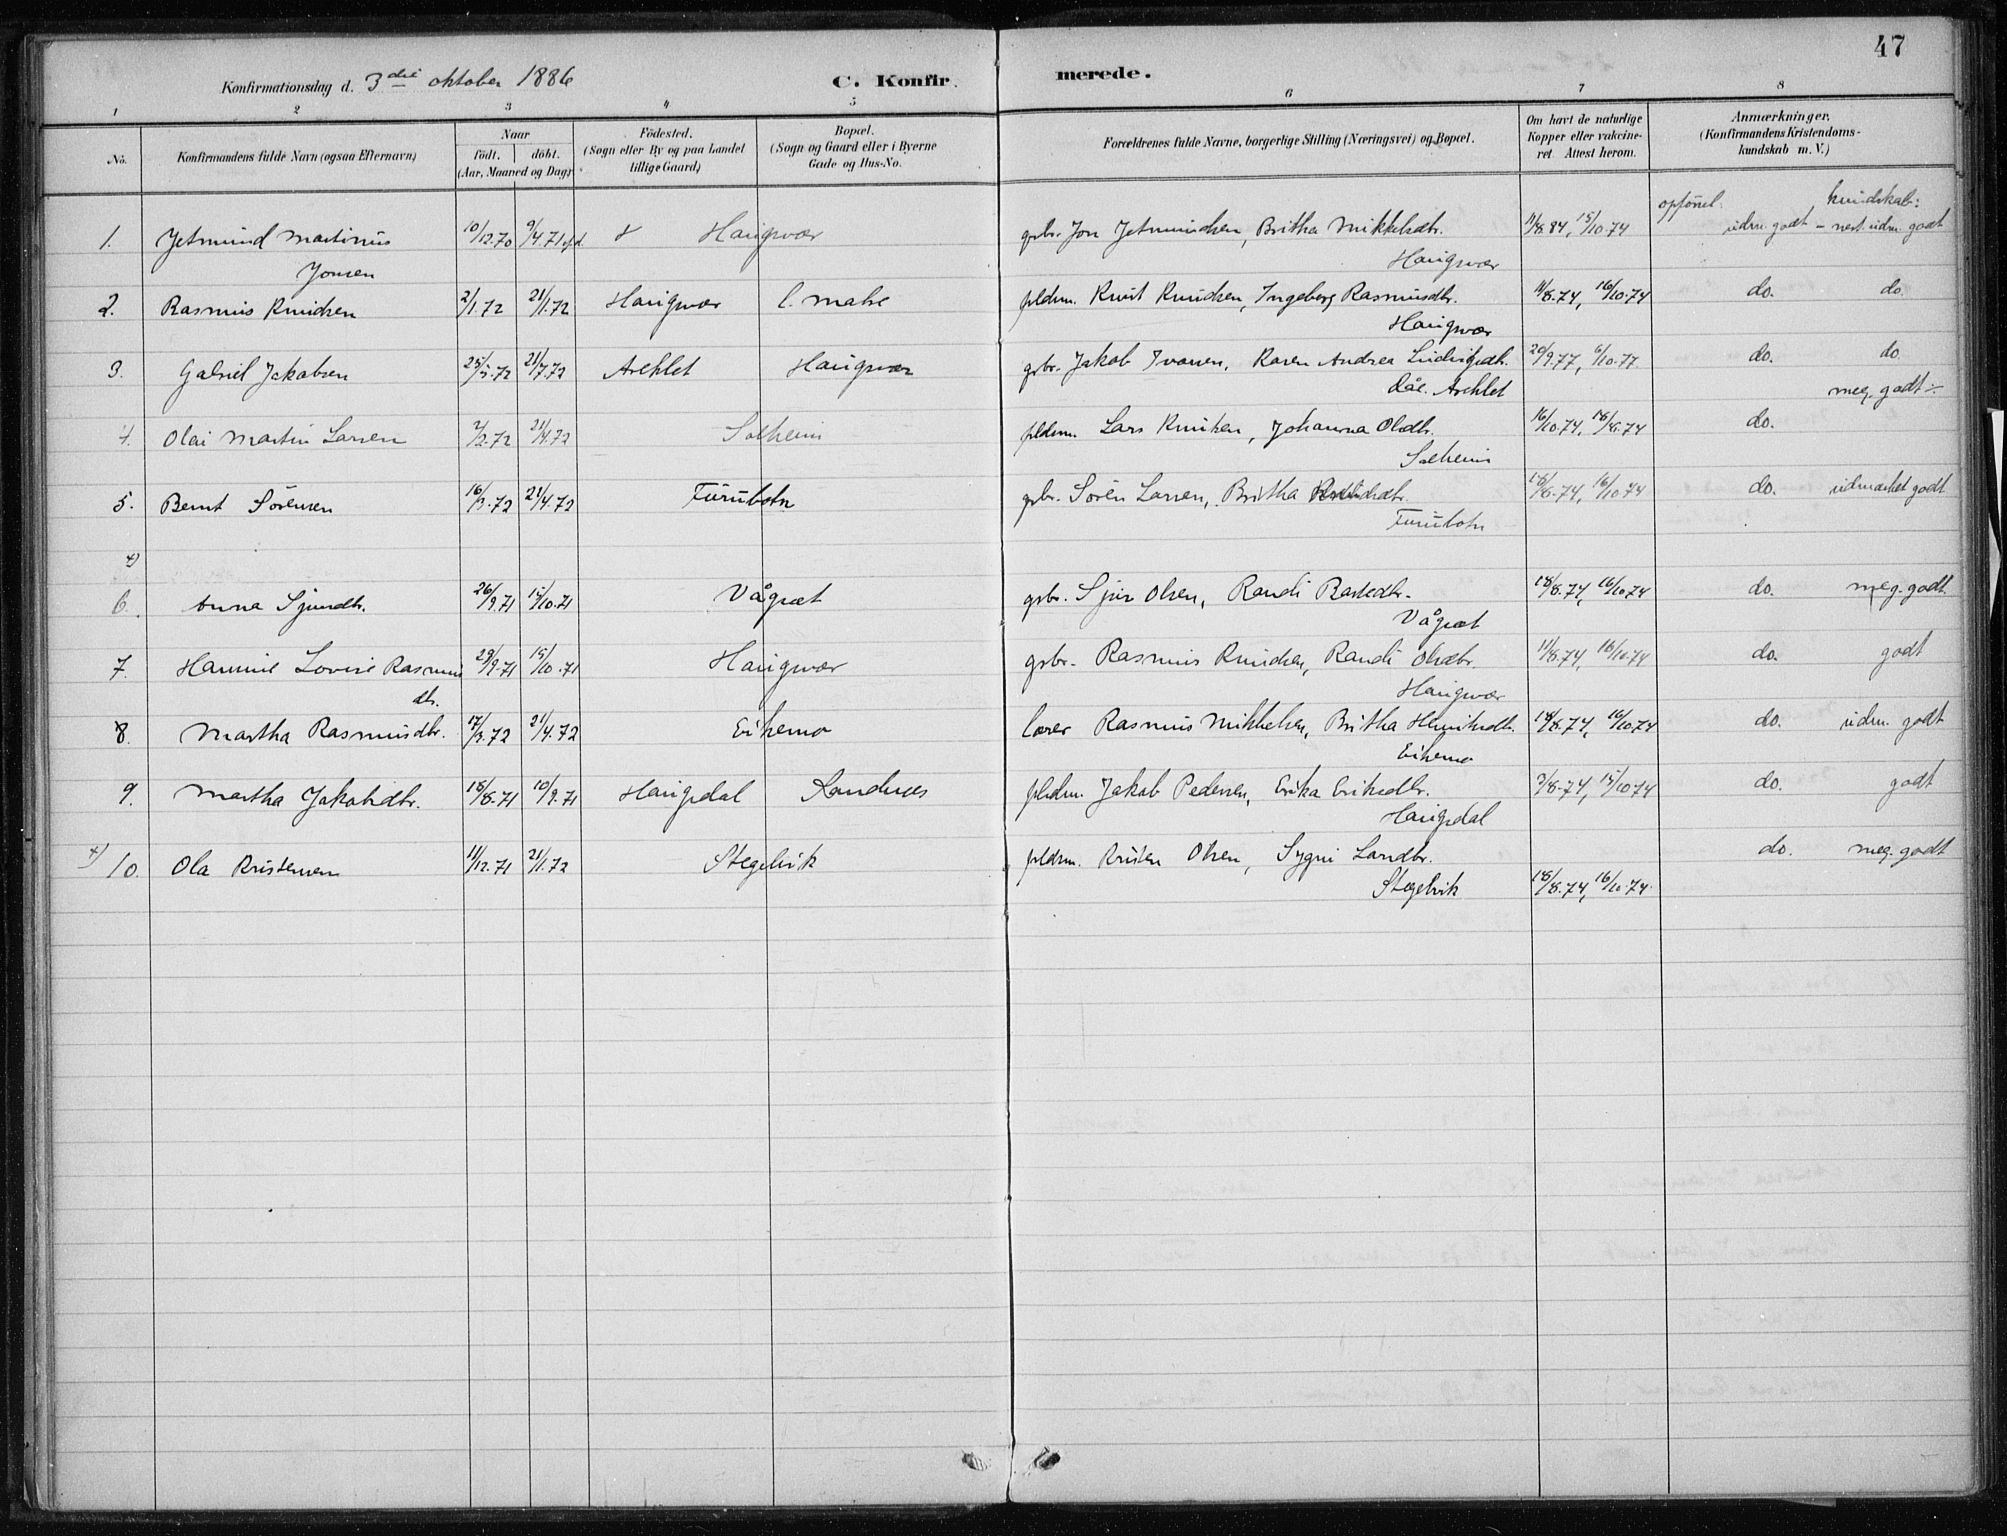 47
Konfirmationsdag d. 3die oktober 1886 C. Konfirmerede.
1 2 3 4 5 6 7 8
No. Konfirmandens fulde Navn (ogsaa Efternavn) Naar født. døbt. (Aar, Maaned og Dag) Födested. (Sogn eller By og paa Landet tillige Gaard) Bopæl. (Sogn og Gaard eller i Byerne Gade og Hus-No. Forældrenes fulde Navne, borgerlige Stilling (Næringsvei) og Bopæl. Om havt de naturlige Kopper eller vakcineret. Attest herom. Anmærkninger. (Konfirmandens Kristendomskundskab m. V.)
opførsel. kundskab:
1. Jetmund Martinus 10/12.70 9/4.71 Haugsvær gbr. Jon Jetmundsen, Britha Mikkelsdtr. 11/8.84, 15/10.74 udm. godt – nest. udm. godt
Jonsen Haugsvær
2. Rasmus Knudsen 2/1.72 21/1.72 Haugsvær l. Matre pldsm. Knut Knudsen, Ingeborg Rasmusdtr. 11/8.74, 16/10.74 do. do.
Haugsvær
3. Gabriel Jakobsen 25/5.72 21/7.72 Areklet Haugsvær gbr. Jakob Ivarsen, Karen Andrea Ludvigsdtr. 20/9.77, 6/10.77 do. do
Areklet meg. godt ÷
4. Olai Martin Larsen 2/2.72 21/4.72 Solheim pldsm. Lars Knutsen, Johanna Olsdtr. 16/10.74, 18/8.74 do.
Solheim
5. Bernt Sørensen 16/3.72 21/4.72 Furubotn gbr. Søren Larsen, Britha 18/8.74, 16/10.74 do. udmærket godt
Furubotn
6. Anna Sjursdtr. 26/9.71 15/10.71 Vågsæt gbr. Sjur Olsen, Randi Bastedtr. 18/8.74, 16/10.74 do. meg. godt.
Vågsæt
7. Hannine Lovise Rasmus 29/9.71 15/10.71 Haugsvær gbr. Rasmus Knudsen, Randi Olsdtr. 11/8.74, 16/10.74 do. godt
dtr. Haugsvær
8. Martha Rasmusdtr. 17/3.72 21/4.72 Eikemo lærer Rasmus Mikkelsen, Britha Henriksdtr. 18/8.74, 16/10.74 do. udm. godt
Eikemo
9. Martha Jakobsdtr. 18/8.71 10/9.71 Haugsdal Sandnes pldsm. Jakob Pedersen, Erika Eriksdtr. 7/8.74, 15/10.74 do. godt
Haugsdal
10. Ola Kristensen 11/12.71 21/1.72 Stegelvik pldsm. Kristen Olsen, Sygni Larsdtr. do. meg. godt
Stegelvik 18/8.74, 16/10.74